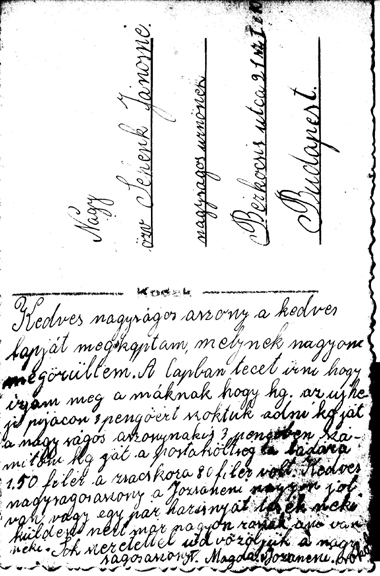 Nagy
özv Schenk Jánosné.
nagyságos úrnőnek
Bérkocsis utca 21 sz
Budapest.
Kodak
Kedves nagyságos aszony a kedves
lapját megkaptam, melynek nagyon
megörültem. A lapban tecet irni hogy
irjam meg a máknak hogy kg. az ujhe
ji pijácon 3 pengőért szoktuk adni kg ját
a nagy ságos aszonynakis 3 pengőben szá-
mitom kg ját a posta költség a ládára
1.50 filer a zsacskora 80 filer volt. Kedves
nagyságosaszony a Jozsanéni nagyon jol
van, vagy egy pár harisnyát tesék neki
küldeni mert már nagyon
neki. Sok szeretettel üdvözöljük a nagy
ságosaszony N. Magda Jozsanéni